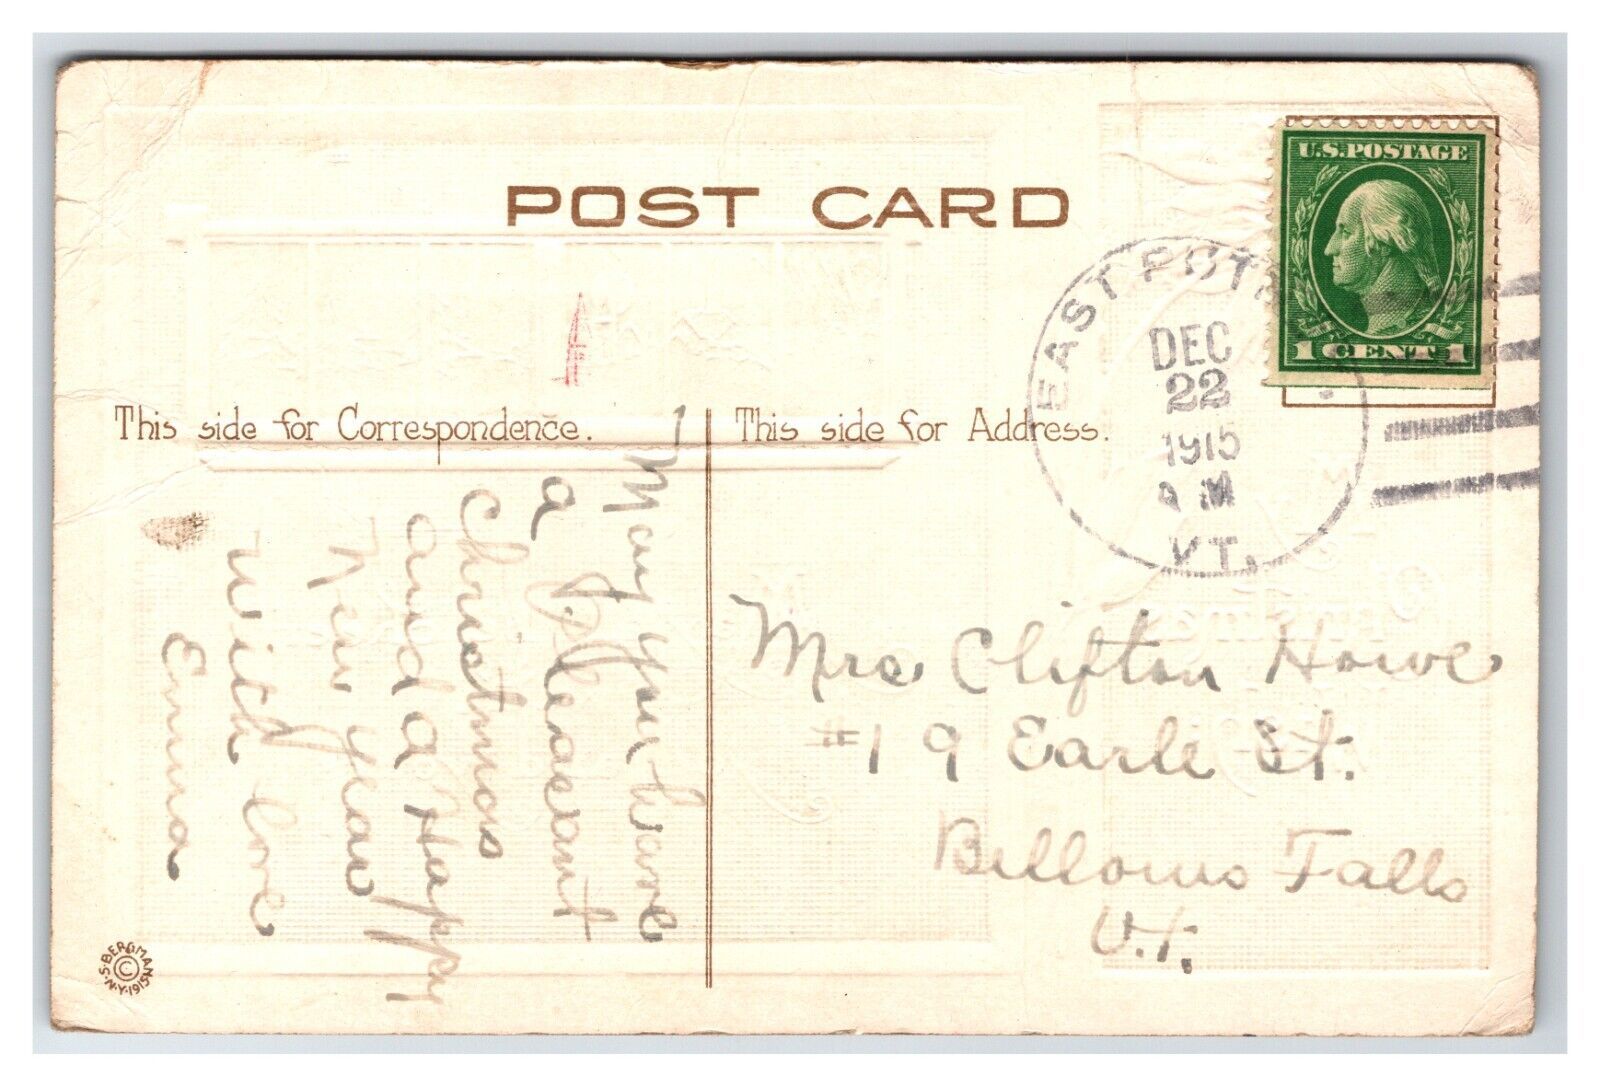 POST CARD
U.S.POSTAGE
1 CENT 1
EAST
DEC
22
1915
A M
VT.
This side for Correspondence.
This side for Address.
May you have
a Pleasant
Christmas
and a Happy
New year
with love
Emma
Mrs Clifton Howe
#19 Earle St.
Bellows Falls
Vt.
S. BERGMAN N.Y. 1915
©